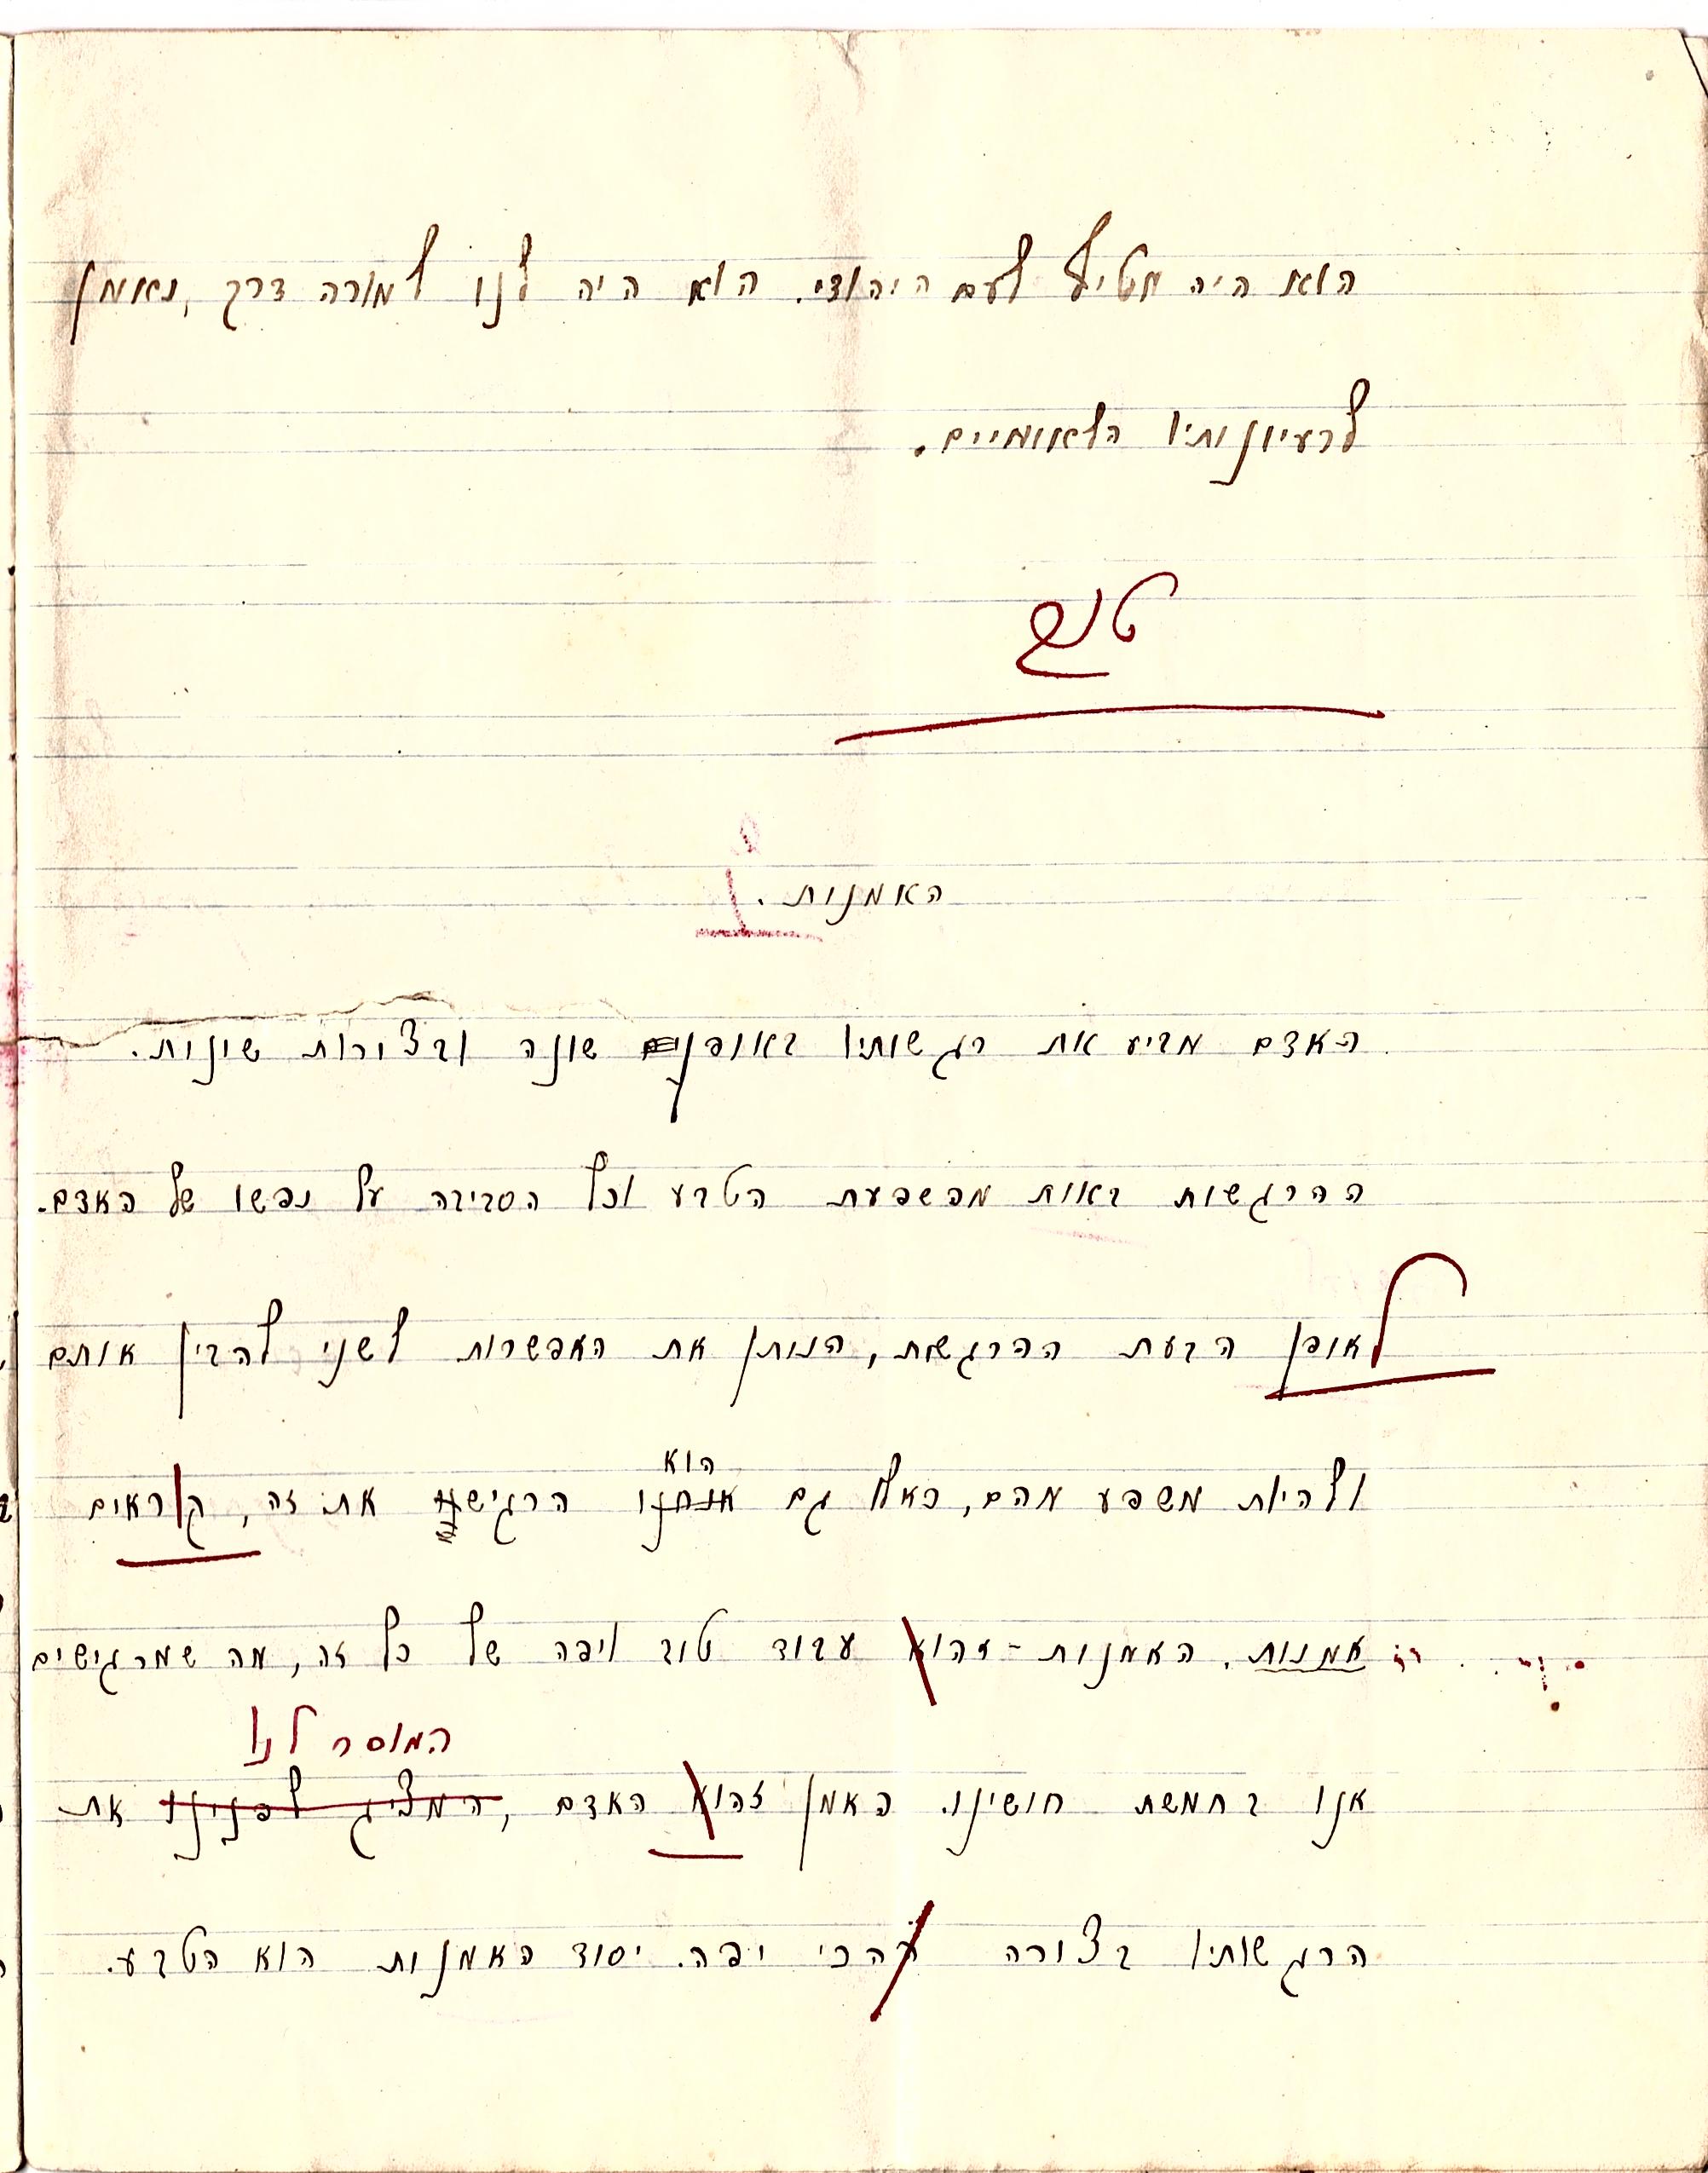 הוא היה מטיף לעם היהודי. הוא היה לנו למורה דרך, נאומן
לרעיונותיו הלאומיים.
האמנות.
האדם מביע את רגשותיו באופן שונה ובצורות שונות.
ההרגשות באות מהשפעת הטבע וכל הסביבה על נפשו של האדם.
לאופן הבעת ההרגשות, הנותן את האפשרות לשני להבין אותם
הוא
ולהיות משפע מהם, כאלו גם אנחנו הרגיש את זה, קוראים
אמנות. האמנות - זהוא עבוד טוב ויפה של כל זה, מה שמרגישים
המוסר לנו
אנו בחמשת חושינו. האמן זהוא האדם, המציג לפנינו את
הרגשותיו בצורה הכי יפה. יסוד האמנות הוא הטבע.